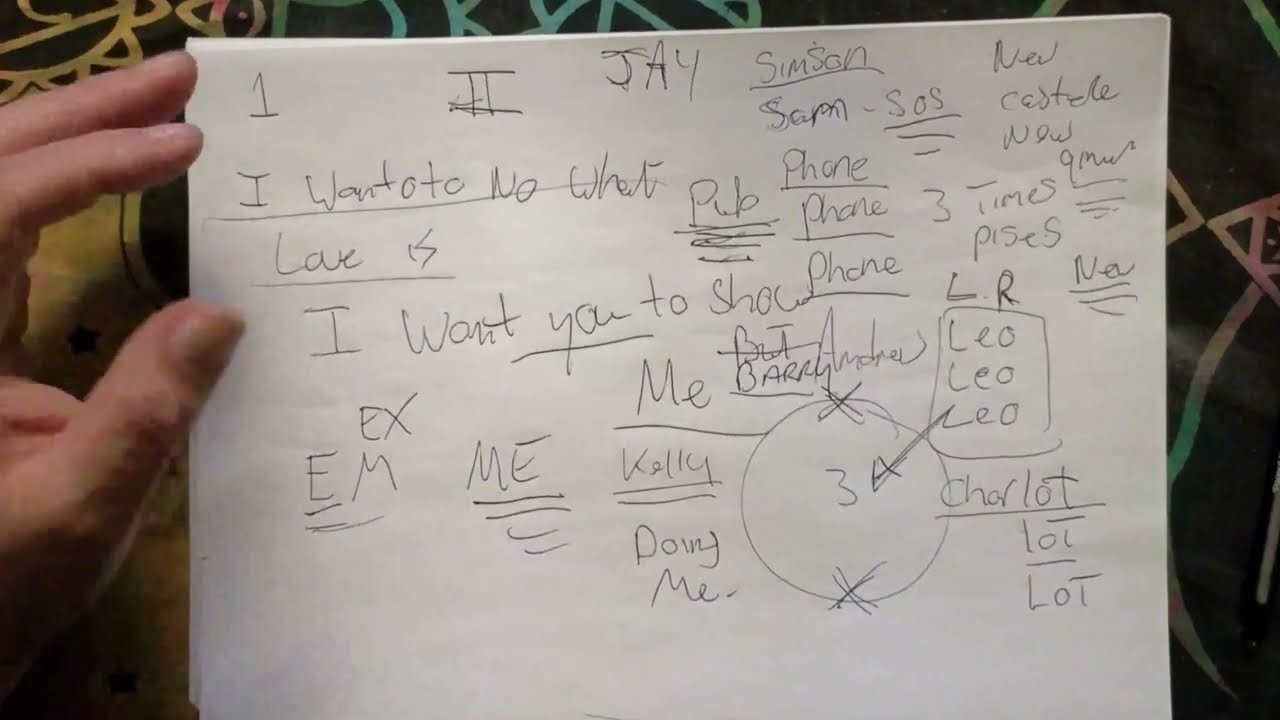 1
II
JAY
Simson
Sarn - SOS
New
castele
New
I Wantoto No What
Love is
Pub
Phone
Phone
Phone
3 Times
pises
New
I Want you to show
Me
BUT
BARRY
Andrew
L.R
Leo
Leo
Leo
EX
EM
ME
Kelly
Doing
Me.
3
Charlot
lot
LoT